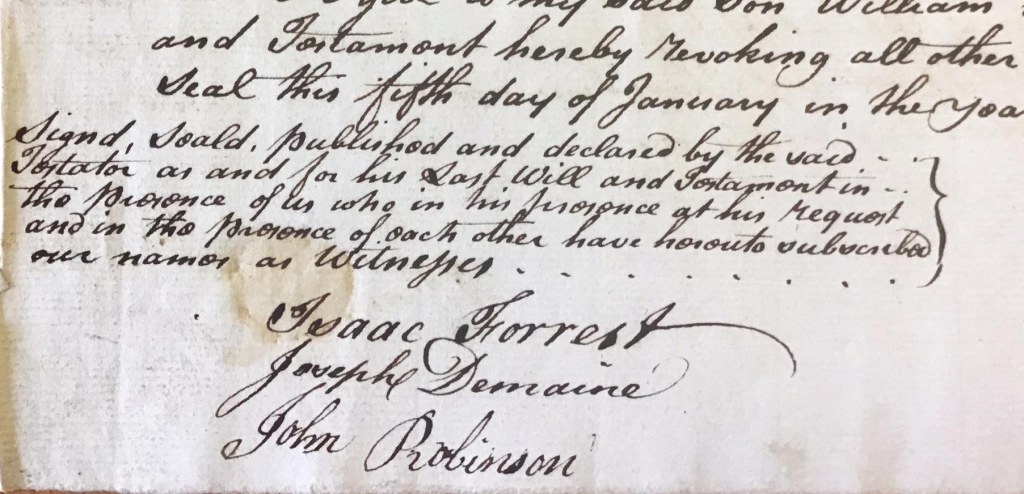 give to my said Son William
and Testament hereby revoking all other
Seal this fifth day of January in the Yea
Signd, Seald, published and declared by the said
Testator as and for his Last Will and Testament in
the Presence of us who in his presence at his request
and in the Presence of each other have hereunto subscribed
our names as Witnesses
Isaac Forrest
Joseph Demaine
John Robinson